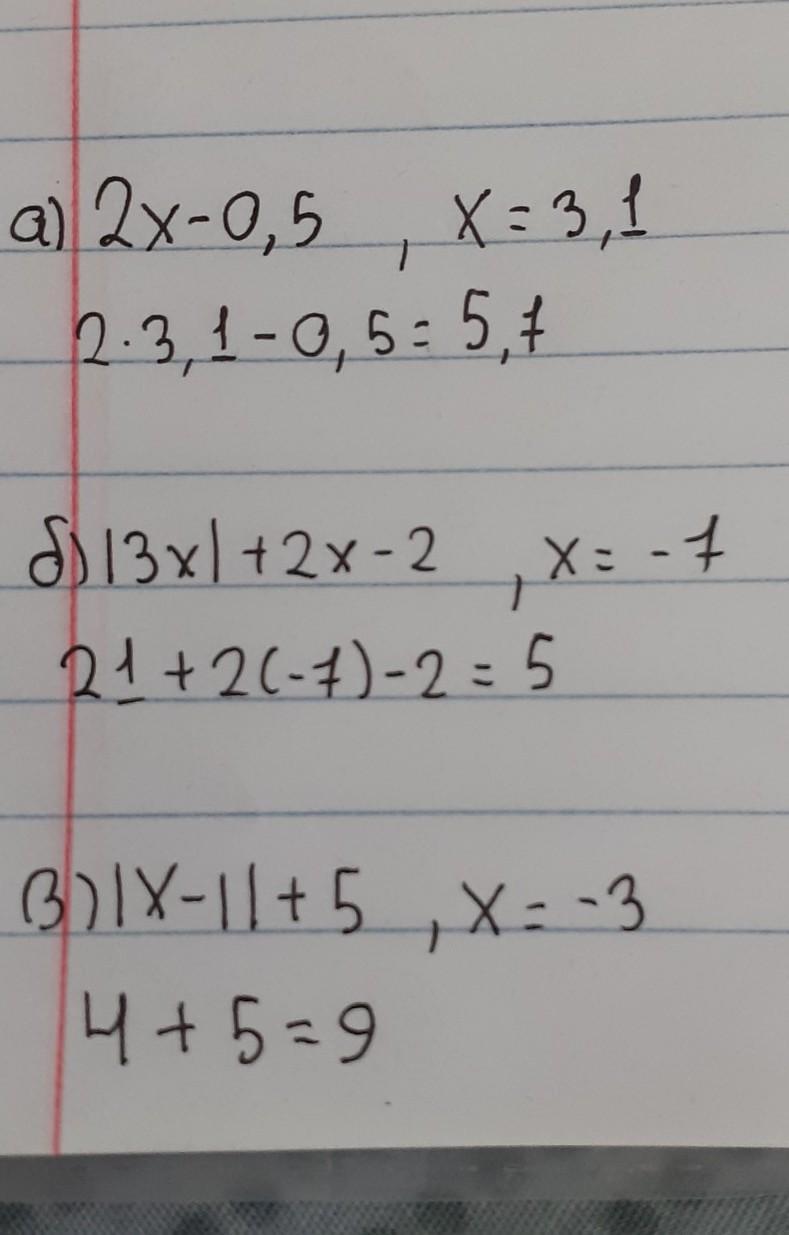 а) 2x-0,5 , x=3,1
2·3,1-0,5=5,7
б) |3x|+2x-2 , x=-7
21+2(-7)-2=5
в) |x-1|+5 , x=-3
4+5=9